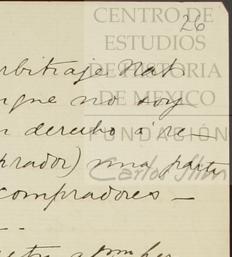 CENTRO DE
26
ESTUDIOS
DE HISTORIA
DE MEXICO
FUNDACIÓN
Carlos Slim
arbitraje Nat
que no soy
derecho á re—
prador) una parte
compradores —